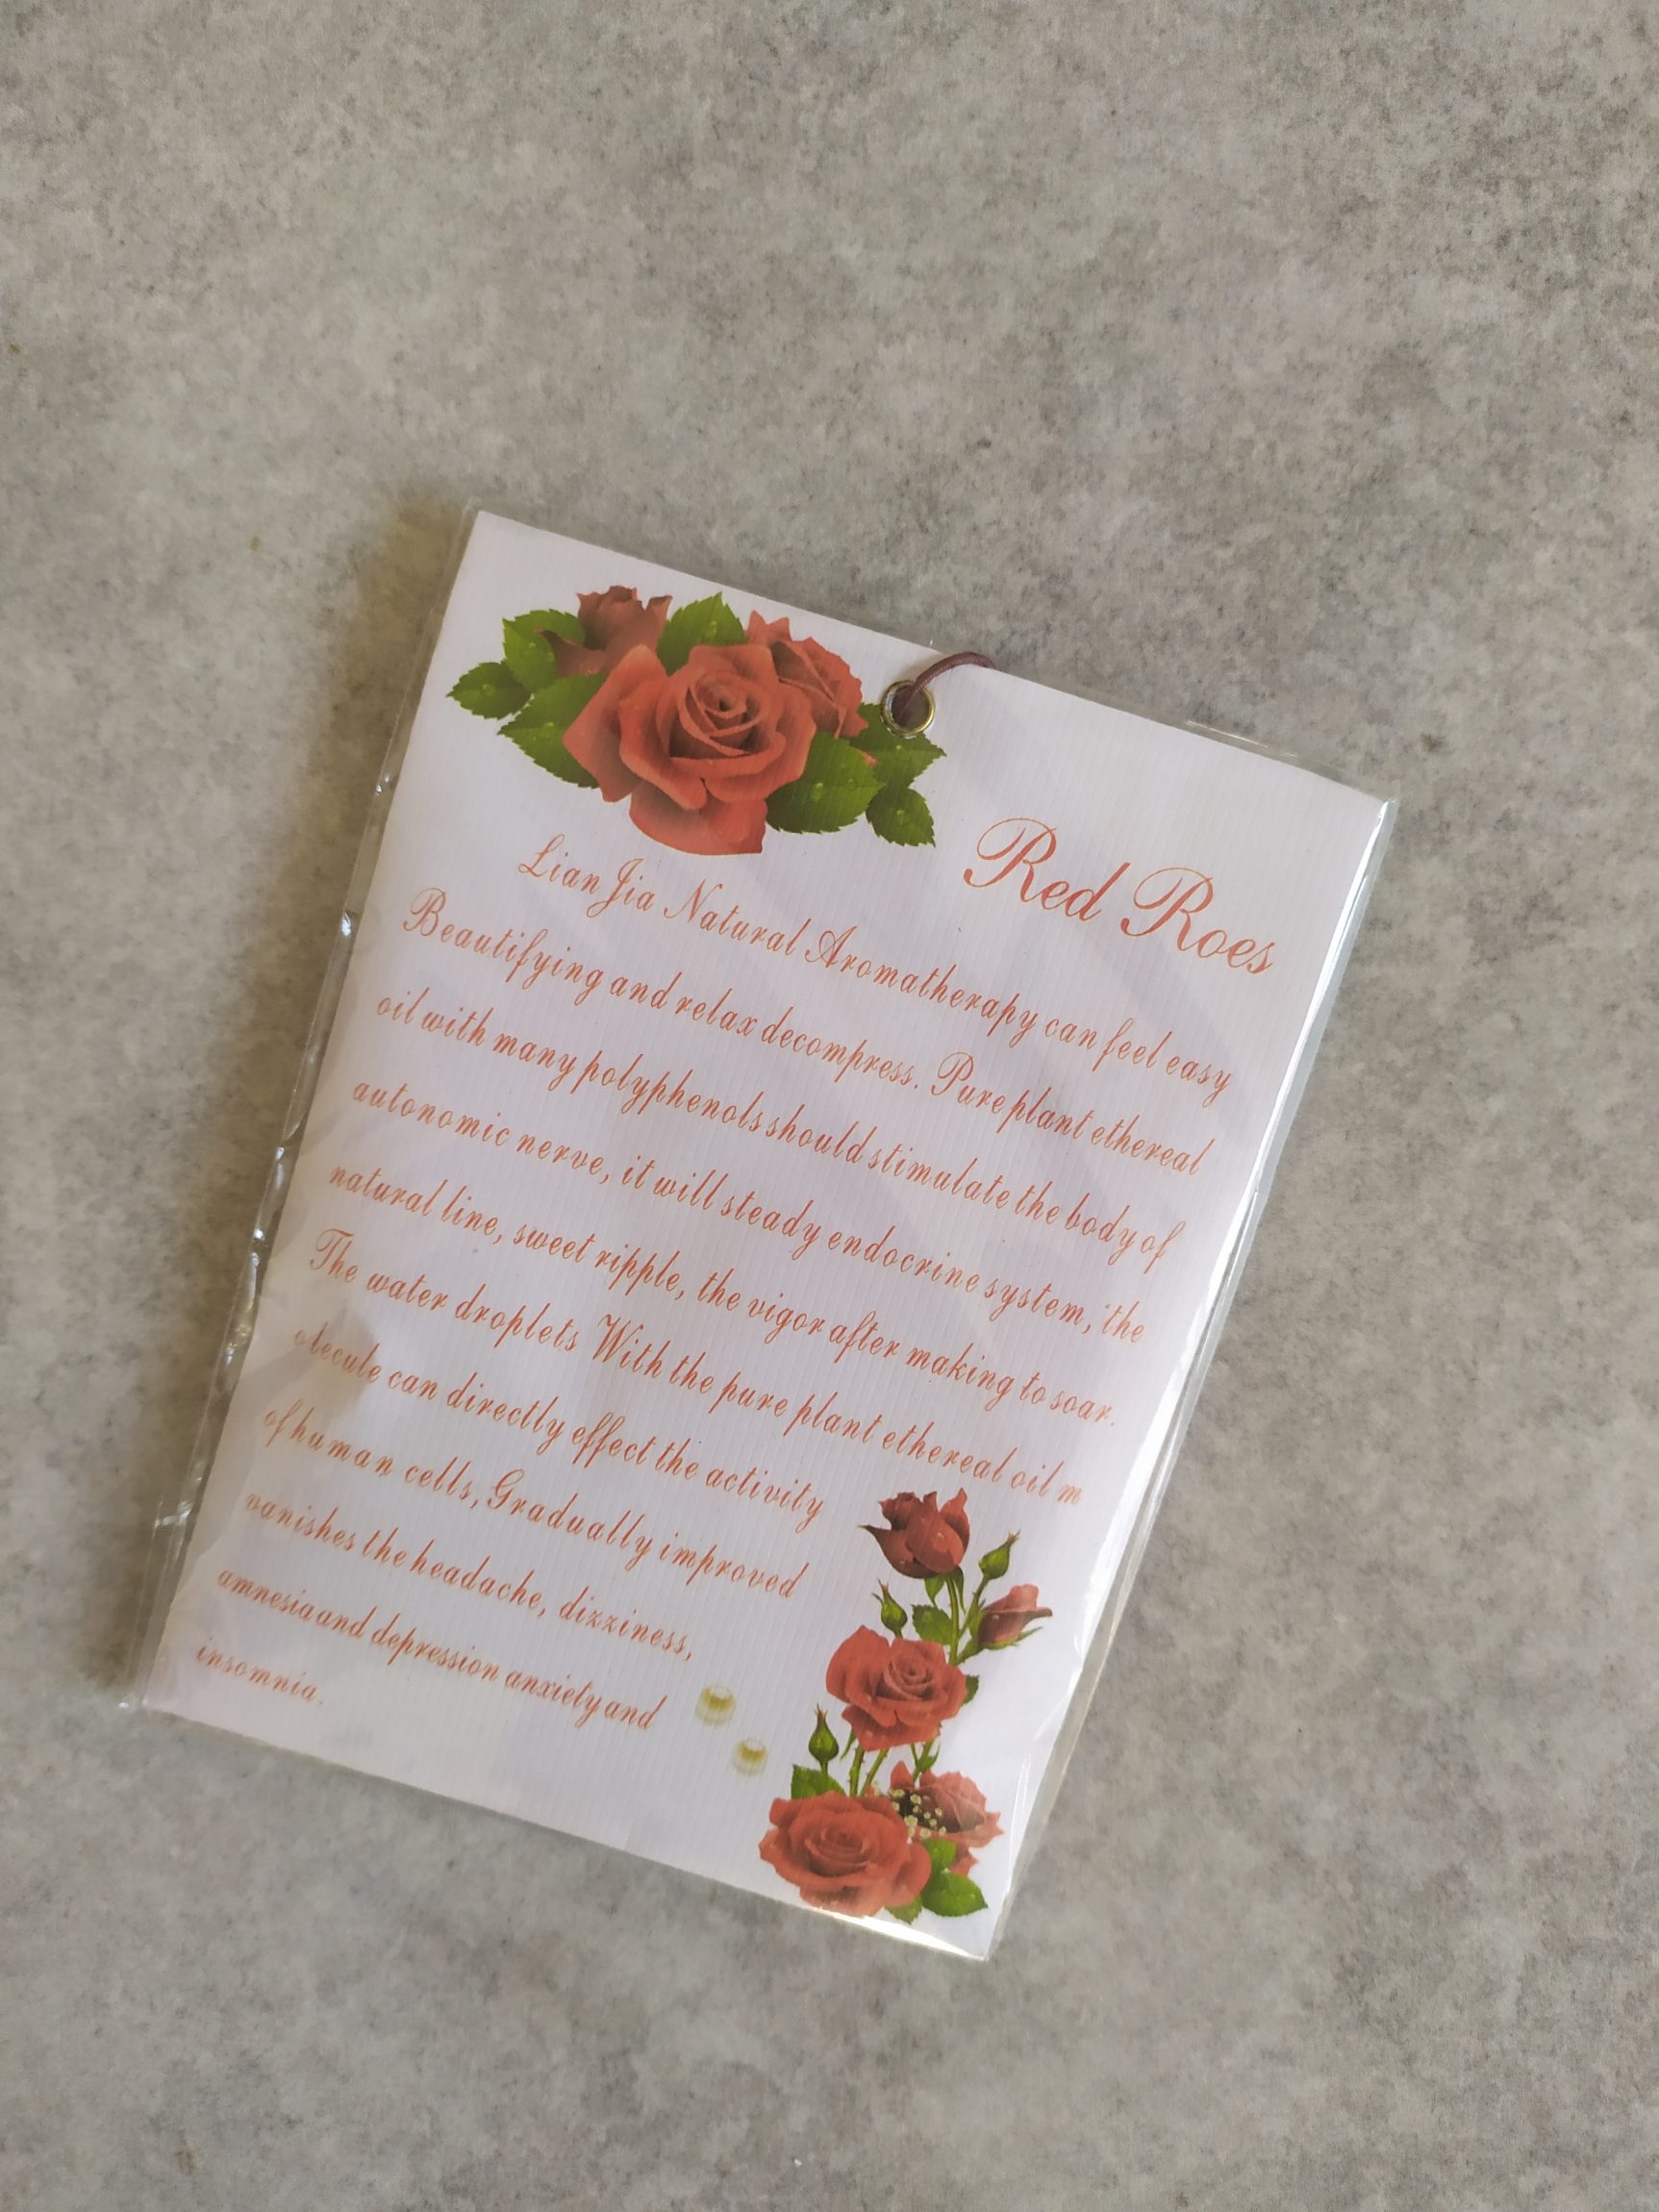 Red Roes
Lian Jia Natural Aromatherapy can feel easy
Beautifying and relax decompress. Pure plant ethereal
oil with many polyphenols should stimulate the body of
autonomic nerve, it will steady endocrine system, the
natural line, sweet ripple, the vigor after making to soar.
The water droplets With the pure plant ethereal oil m
olecule can directly effect the activity
of human cells, Gradually improved
vanishes the headache, dizziness,
amnesia and depression anxiety and
insomnia.